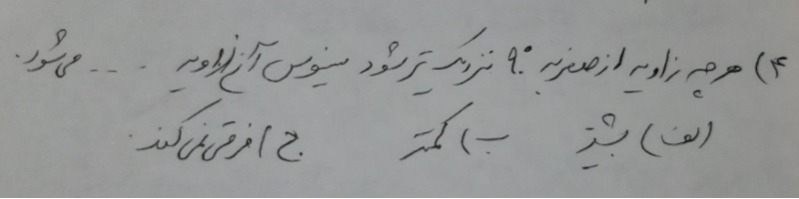 ۴) هرچه زاویه از صفر به ۹۰° نزدیک تر شود سینوس آن زاویه .... می شود.
الف) بیشتر ب) کمتر ج) فرقی نمی کند.